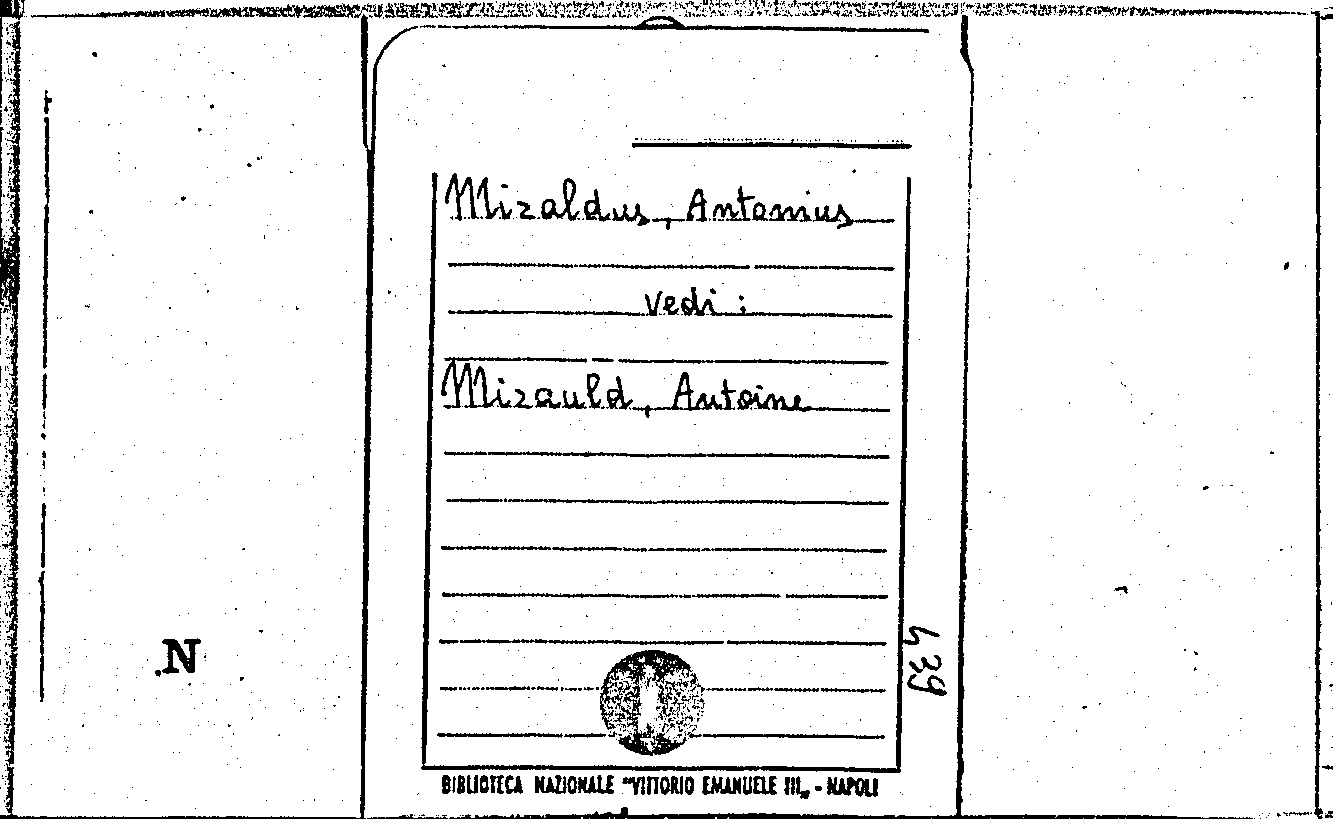 Mizaldus, Antonius
vedi :
Mizauld, Antoine
439
N
BIBLIOTECA NAZIONALE "VITTORIO EMANUELE III„ - NAPOLI